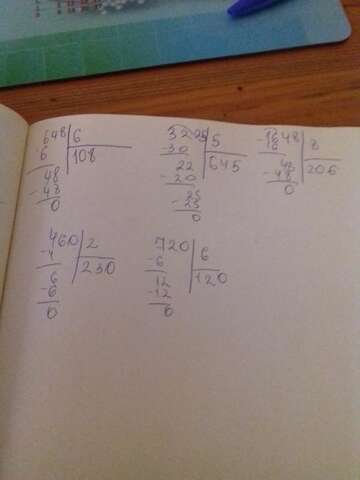 648 6
-6 108
48
-48
0
3225 5
-30 645
22
-20
25
-25
0
-1648 8
16 206
48
-48
0
460 2
-4 230
6
-6
0
720 6
-6 120
12
-12
0